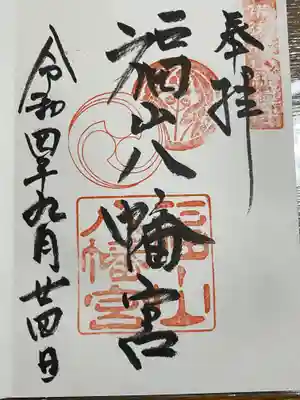 奉拝
福山八幡宮
福山
八幡宮
令和四年九月廿四日